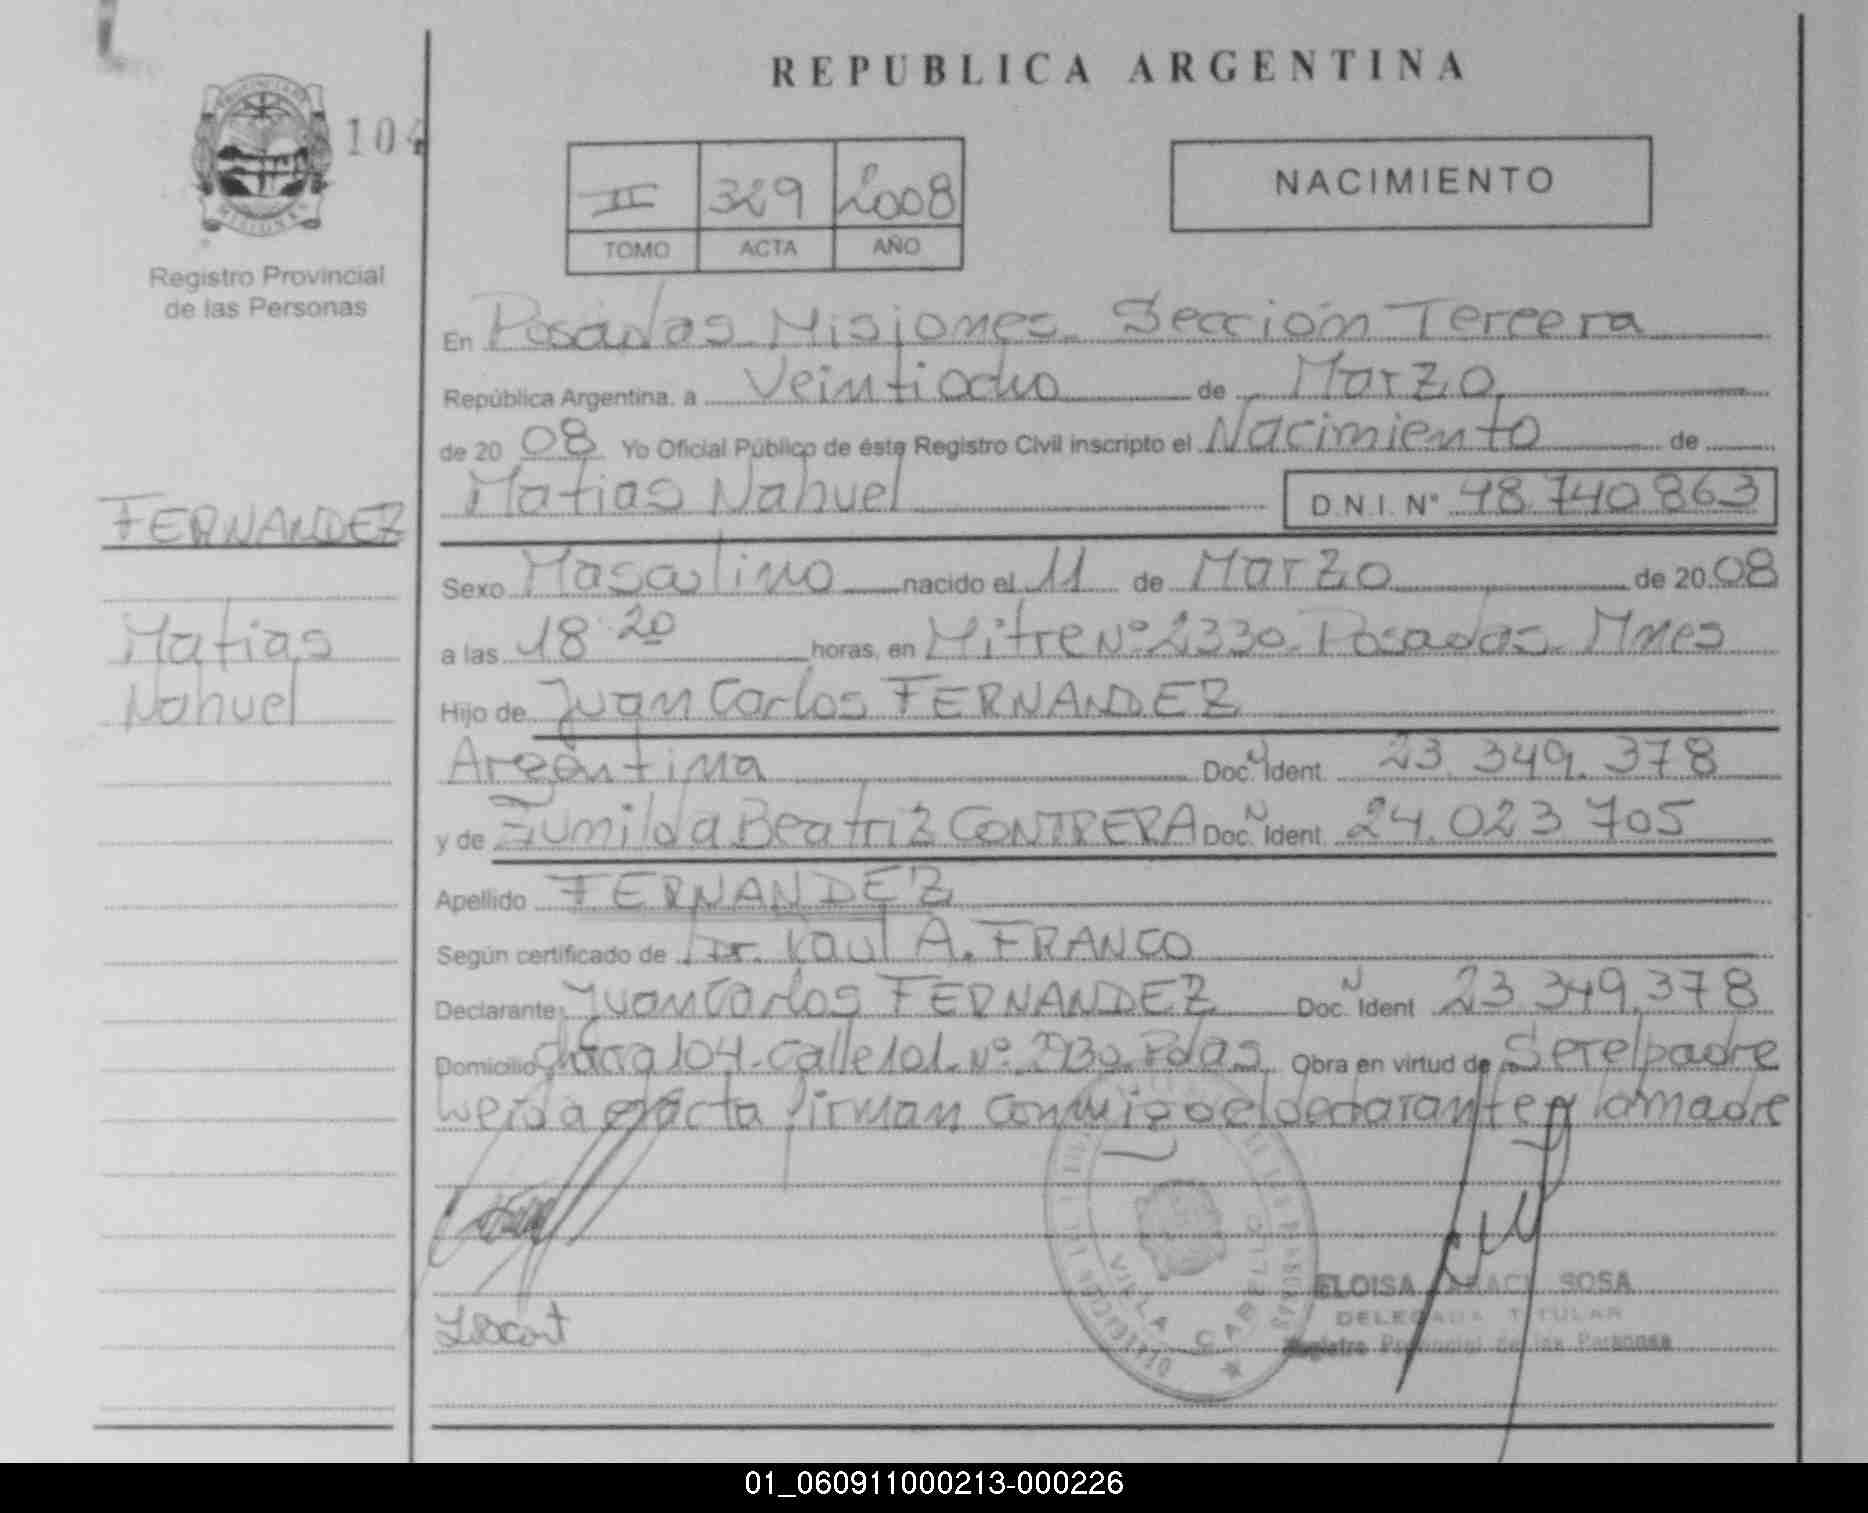 REPUBLICA ARGENTINA
104
II 329 2008
TOMO ACTA AÑO
NACIMIENTO
Registro Provincial
de las Personas
En Posadas Misiones. Sección Tercera
República Argentina, a Veintiocho de Marzo
de 20 08 Yo Oficial Público de éste Registro Civil inscripto el Nacimiento de
Matias Nahuel D.N.I. Nº 48.740.863
FERNANDEZ
Matias
Nahuel
Sexo Masculino nacido el 11 de Marzo de 20 08
a las 18.20 horas, en Mitre Nº 2330. Posadas. Mnes
Hijo de Juan Carlos FERNANDEZ
Argentina Doc. N Ident. 23.349.378
y de Zumilda Beatriz CONTRERA Doc. N Ident. 24.023.705
Apellido FERNANDEZ
Según certificado de Dr. Raul A. FRANCO
Declarante Juan Carlos FERNANDEZ Doc. N Ident 23.349.378
Domicilio chacra 104-calle 101. Nº 2930. Pdas. Obra en virtud de Ser el padre
leída el acta firman conmigo el declarante y la madre
VILLA CABELLO
ELOISA SOSA
DELEGADA TITULAR
Registro Provincial de las Personas
01_060911000213-000226